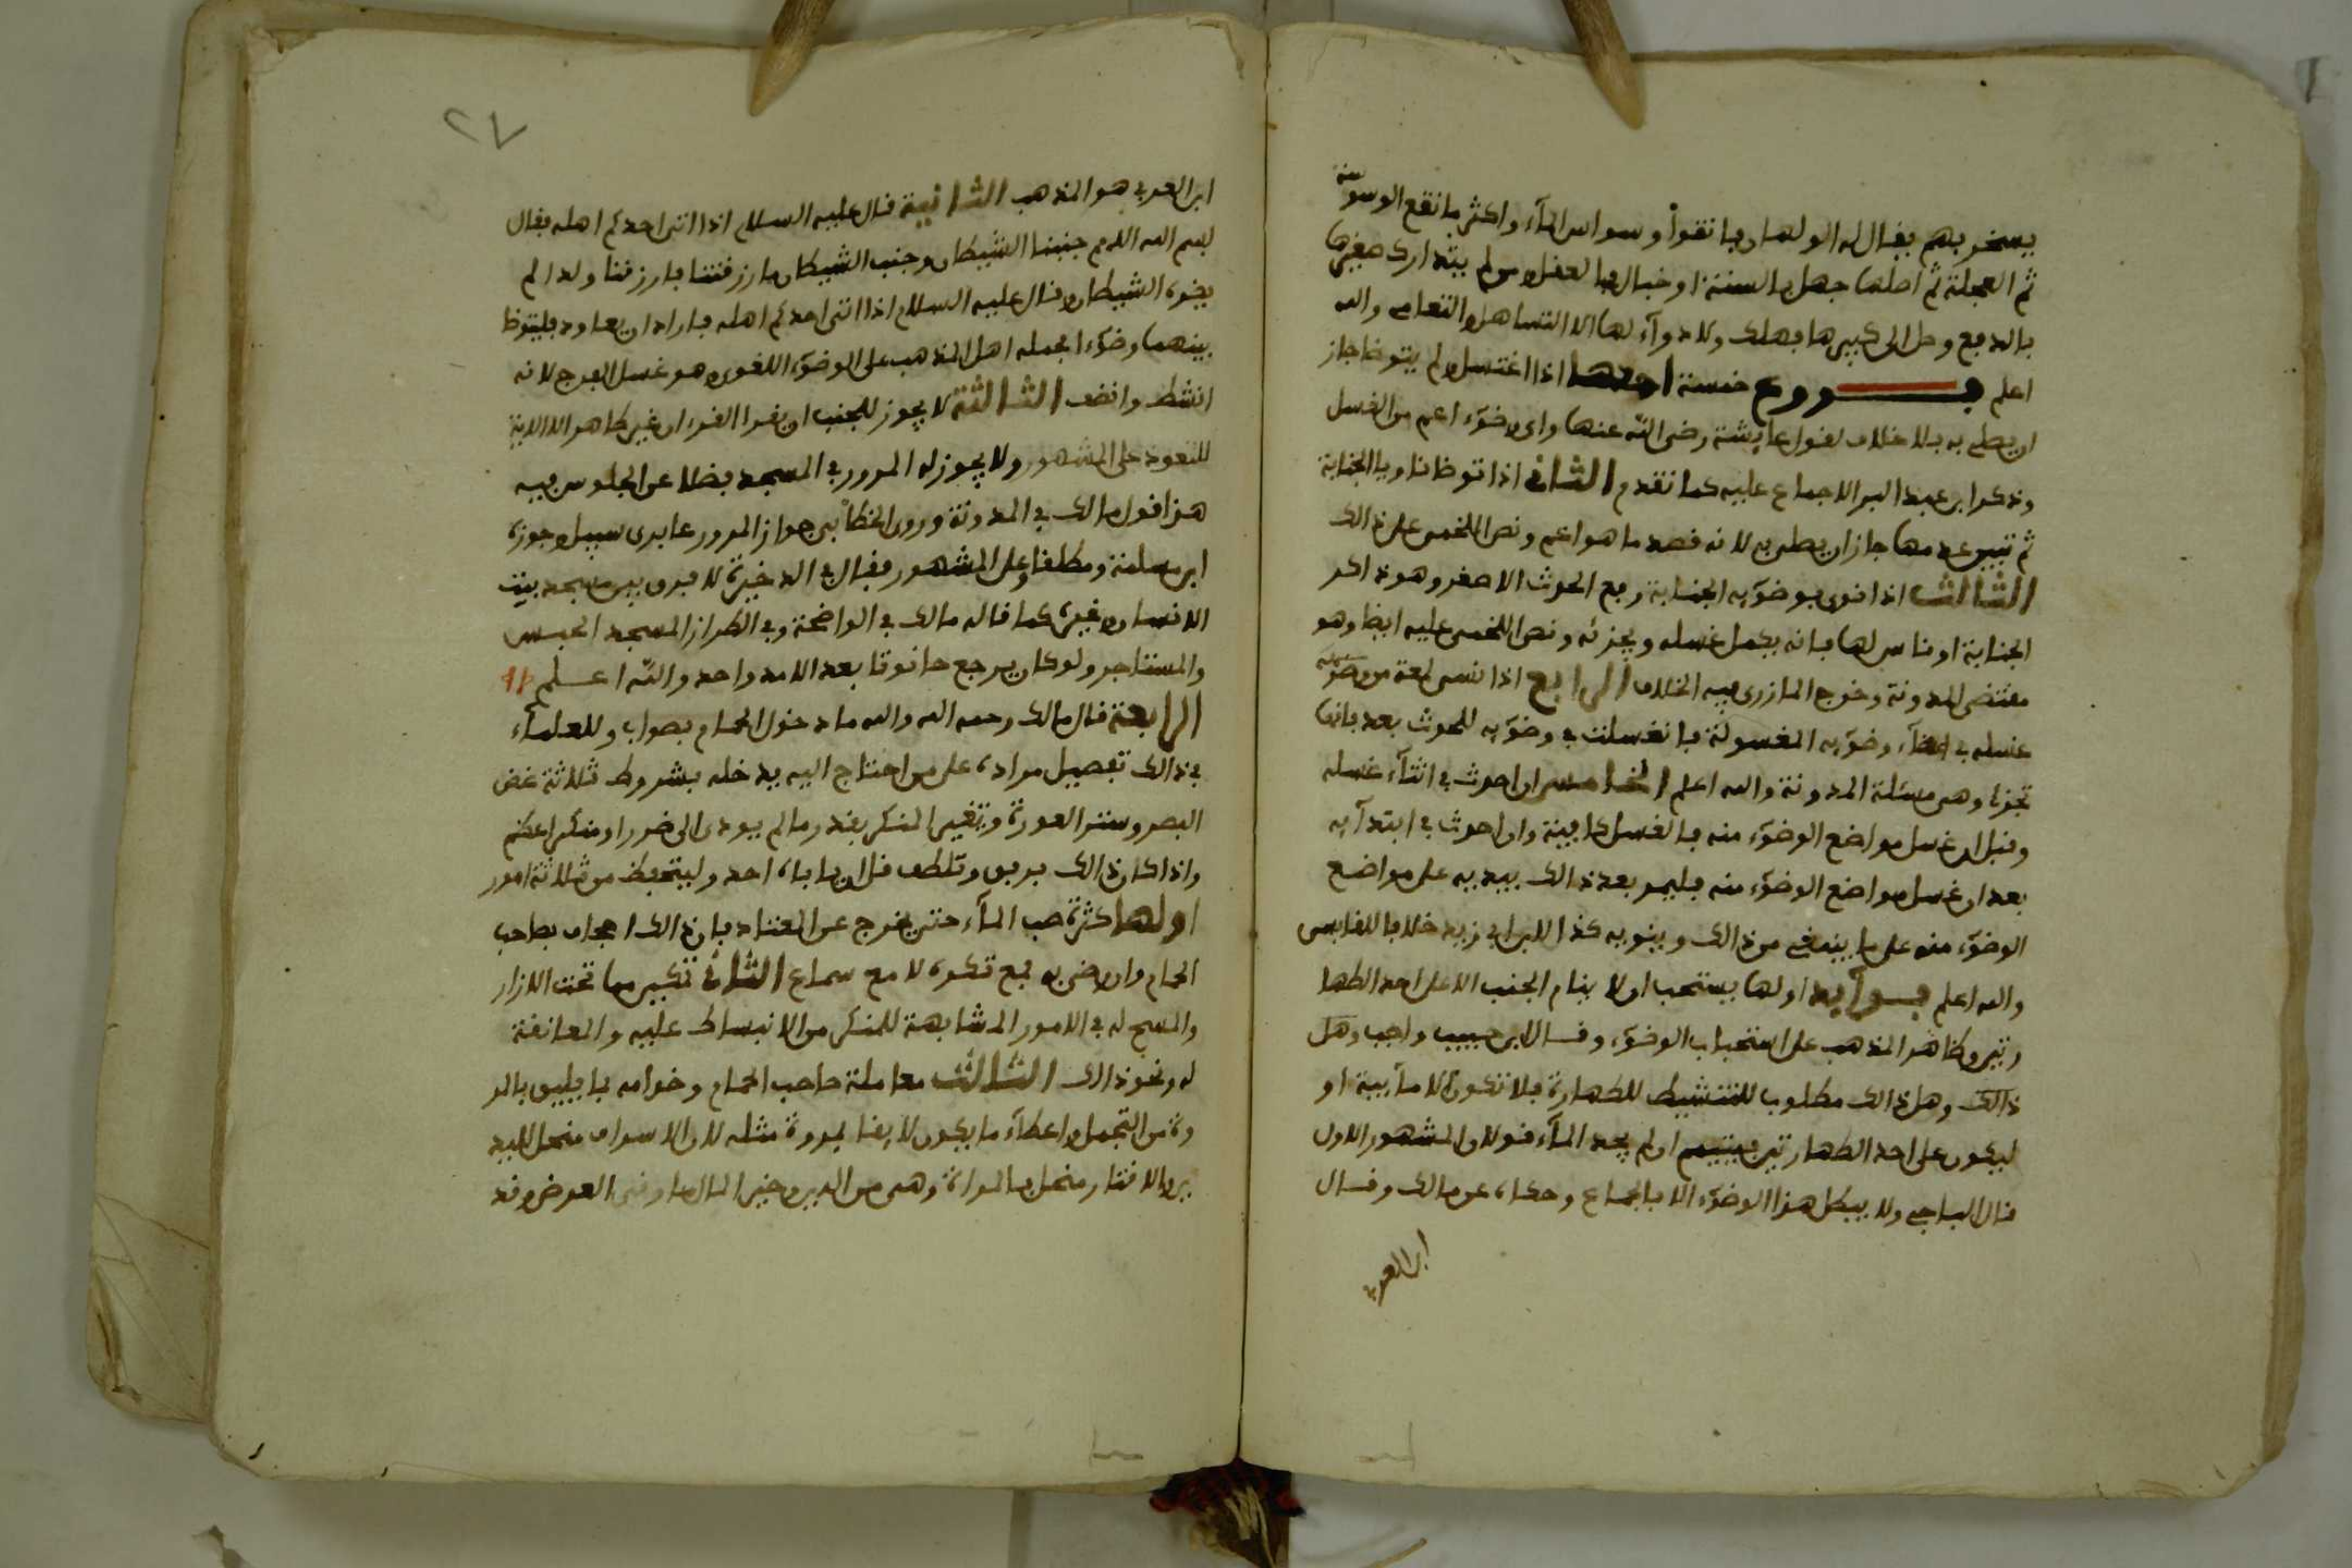 يسخر بهم يقال له الولهان فاتقوا وسواس المآء واكثر ما تقع الوسوسة
ثم العجلة ثم اصلها جهل بالسنة او خبال بالعقل ومن لم يتدارك صغيرها
بالدفع وصل الى كبيرها فهلك ولا دوآء لها الا التساهل والتعامى والله
اعلم فــــروع خمسة احدها اذا اغتسل ولم يتوضا جاز
ان يصلي به بلا خلاف لقول عايشة رضي الله عنها واى وضوء اعم من الغسل
وذكر ابن عبد البر الاجماع عليه كما تقدم الثاني اذا توضا ناويا الجنابة
ثم تبين عدمها جاز ان يصلي به لانه قصد ما هو اعم ونص اللخمي على ذالك
الثالث اذا نوى بوضوءيه الجنابة رفع الحدث الاصغر وهو ذاكر
الجنابة او ناس لها فانه يكمل غسله ويجزئه ونص اللخمي عليه ايضا وهو
مقتضى المدونة وخرج المازري فيه الخلاف الرابع اذا نسي لمعة من وضوء
غسله في اعضآء وضوءيه المغسولة فانغسلت في وضوءيه للحدث بعد فانها
تجزا وهي مسئلة المدونة والله اعلم الخامس ان احدث في اثنآء غسله
وقبل ان غسل مواضع الوضوء منه فالغسل كافية وان احدث في ابتدآيه
بعد ان غسل مواضع الوضوء منه فليمر بعد ذالك بيديه على مواضع
الوضوء منه على ما ينبغي من ذالك وينويه كذا لابن ابي زيد خلافا للقابسي
والله اعلم فــوآيد اولها يستحب ان لا ينام الجنب الا على احد الطها
رتين وظاهر المذهب على استحباب الوضوء وقال ابن حبيب واجب وهل
ذالك وهل ذالك مطلوب للتنشيط للطهارة فلا تكون الا مآيية او
ليكون على احد الطهارتين فيتيمم ان لم يجد المآء قولان والمشهور الاول
قال الباجي ولا يبطل هذا الوضوء الا بالجماع وحكاه عن مالك وقال
ابن العربي
٢٧
ابن العربي هو المذهب الثانية قال عليه السلام اذا اتى احدكم اهله فقال
بسم الله اللهم جنبنا الشيطان وجنب الشيطان ما رزقتنا فان رزقنا ولدا لم
يضره الشيطان وقال عليه السلام اذا اتى احدكم اهله فاراد ان يعاود فليتوضا
بينهما وضوءا فحمله اهل المذهب على الوضوء اللغوي وهو غسل الفرج لانه
انشط وانضف الثالثة لا يجوز للجنب ان يقرا القرءان غير ظاهر الا الاية
للتعوذ على المشهور ولا يجوز له المرور في المسجد فضلا عن الجلوس فيه
هذا قول مالك في المدونة وروى الخطابي جواز المرور عابري سبيل وجوزه
ابن مسلمة ومطلقا وعلى المشهور فقال في الذخيرة لا فرق بين مسجد بيت
الانسان وغيره كما قاله مالك في الواضحة وفي الطراز المسجد الحبس
والمستاجر ولو كان يرجع حانوتا بعد الامد واحد والله اعلم
الرابعة قال مالك رحمه الله والله ما دخول الحمام بصواب وللعلمآء
في ذالك تفصيل مراده على من احتاج اليه يدخله بشروط ثلاثة غض
البصر وستر العورة وتغيير المنكر بقدر ما لم يودى الى ضرر او منكر اعظم
واذا كان ذالك برفق وتلطف قل ان يا باه احد وليتحفظ من ثلاثة امور
اولها كثرة صب المآء حتى يخرج عن المعتاد فان ذالك اجحاف بصاحب
الحمام وان رضي به فمع تكره لا مع سماع الثاني تكبير ما تحت الازار
والمسح له في الامور المشابهة للمنكر من الانبساط عليه والمعانقة
له ونحو ذالك الثالث معاملة صاحب الحمام وخدامه بما يليق بالمر
وة من التجمل واعطآء ما يكون لايقا بمروة مثله لان الاسراف مخل بالد
ين والاقتار مخل بالمروة وهي من الدين وخير المال ما وقى العرض وقد